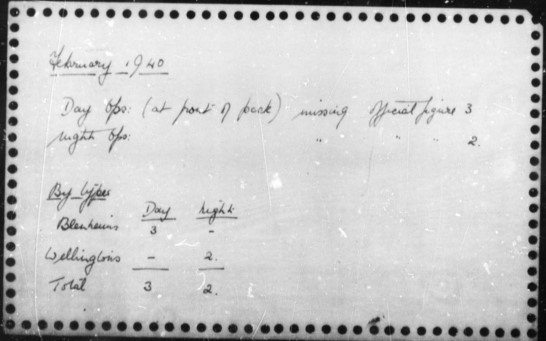 February 1940
Day Ops: (at front of pack) missing Official figure 3
Night Ops: " " " 2.
By types
Day Night
Blenheims 3 -
Wellingtons - 2.
Total 3 2.